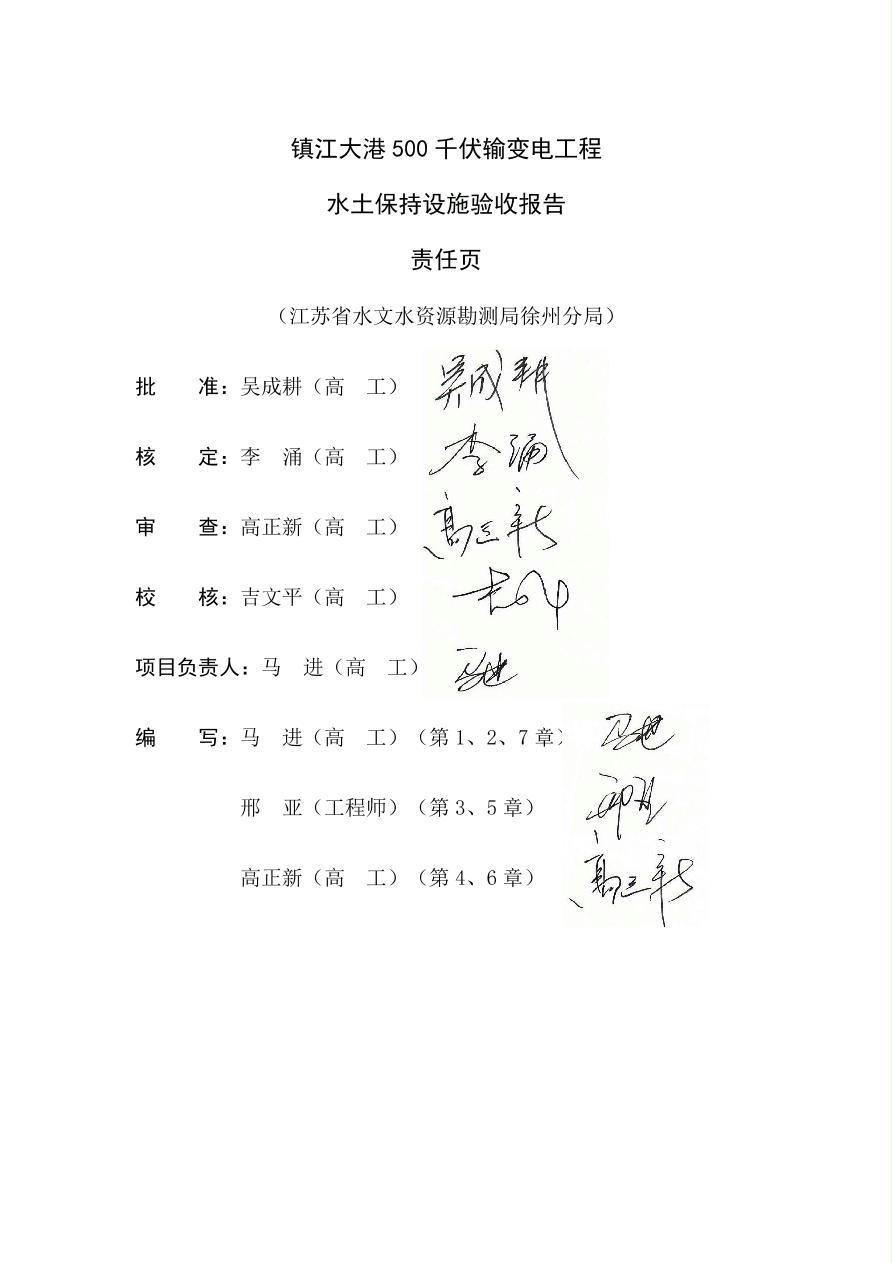 镇江大港 500 千伏输变电工程
水土保持设施验收报告
责任页
（江苏省水文水资源勘测局徐州分局）
批　　准：吴成耕（高　工） 吴成耕
核　　定：李　涌（高　工） 李涌
审　　查：高正新（高　工） 高正新
校　　核：吉文平（高　工） 吉文平
项目负责人：马　进（高　工） 马进
编　　写：马　进（高　工）（第 1、2、7 章） 马进
邢　亚（工程师）（第 3、5 章） 邢亚
高正新（高　工）（第 4、6 章） 高正新